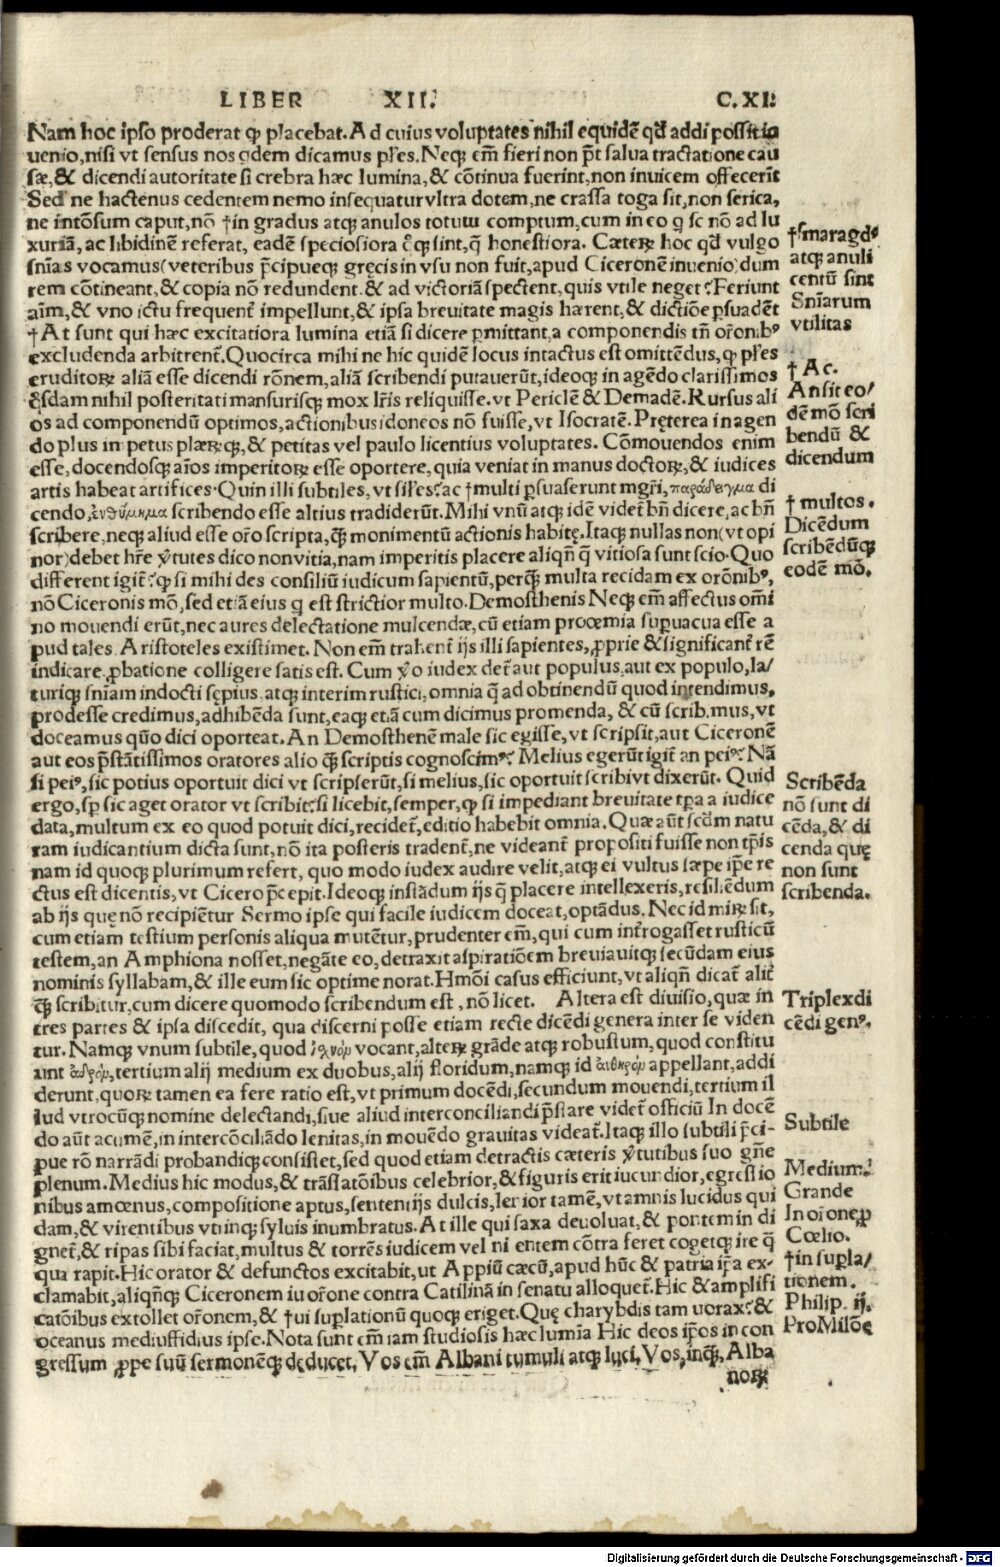 LIBER XII. C.XI.
Nam hoc ipso proderat ꝙ placebat. Ad cuius voluptates nihil equidē qđ addi possit in
uenio, nisi vt sensus nos qdem dicamus pl̃es. Neqꝫ em̃ fieri non põt salua tractatione cau
sæ, & dicendi autoritate si crebra hæc lumina, & cōtinua fuerint, non inuicem offecerit
Sed ne hactenus cedentem nemo insequatur vltra dotem, ne crassa toga sit, non serica,
ne intōsum caput, nō †in gradus atqꝫ anulos totum comptum, cum in eo q se nō ad lu
xuriā, ac libidinē referat, eadē speciosiora q̃qꝫ sint, q̃ honestiora. Cæterꝝ hoc qđ vulgo
sñias vocamus (veteribus p̃cipueqꝫ gręcis in vsu non fuit, apud Ciceronē inuenio) dum
rem cōtineant, & copia nō redundent, & ad victoriā spectent, quis vtile neget? Feriunt
aĩm, & vno ictu frequenter̃ impellunt, & ipsa breuitate magis hærent, & dictiōe ꝑsuadēt
†At sunt qui hæc excitatiora lumina etiā si dicere ꝑmittant, a componendis tñ orõnibꝰ
excludenda arbitrent̃. Quocirca mihi ne hic quidē locus intactus est omittēdus, ꝙ pl̃es
eruditorꝝ aliā esse dicendi rõnem, aliā scribendi putauerūt, ideoqꝫ in agēdo clarissimos
q̃sdam nihil posteritati mansurisqꝫ mox lr̃is reliquisse. vt Periclē & Demadē. Rursus ali
os ad componendū optimos, actionibus idoneos nō fuisse, vt Isocratē. Pręterea in agen
do plus impetus plærꝝqꝫ, & petitas vel paulo licentius voluptates. Cōmouendos enim
esse, docendosqꝫ aĩos imperitorꝝ esse oportere, quia veniat in manus doctorꝝ, & iudices
artis habeat artifices. Quin illi subtiles, vt sil̃es? ac †multi ꝑsuaserunt mgr̃i, παράδειγμα di
cendo, ἐνθύμημα scribendo esse altius tradiderūt. Mihi vnū atqꝫ idē videt̃ bñ dicere, ac bñ
scribere, neqꝫ aliud esse or̃o scripta, q̃ꝫ monimentū actionis habitę. Itaqꝫ nullas non (vt opi
nor) debet hr̃e v̾tutes dico non vitia, nam imperitis placere aliqñ q̃ vitiosa sunt scio. Quo
different igit̃? ꝙ si mihi des consiliū iudicum sapientū, perq̃ꝫ multa recidam ex orõnibꝰ,
nō Ciceronis mõ, sed etiā eius q est strictior multo. Demosthenis Neqꝫ em̃ affectus om̃i
no mouendi erūt, nec aures delectatione mulcendæ, cū etiam procemia suꝑuacua esse a
pud tales Aristoteles existimet. Non em̃ trahent̃ ijs illi sapientes, ꝓprie & significant̃ rē
indicare ꝓbatione colligere satis est. Cum v̾o iudex det̃ aut populus, aut ex populo, la/
turiqꝫ sñiam indocti sępius, atqꝫ interim rustici, omnia q̃ ad obtinendū quod intendimus,
prodesse credimus, adhibēda sunt, eaqꝫ etiā cum dicimus promenda, & cū scribimus, vt
doceamus quõ dici oporteat. An Demosthenē male sic egisse, vt scripsit, aut Ciceronē
aut eos p̃stātissimos oratores alio q̃ꝫ scriptis cognoscimꝰ? Melius egerūt igit̃ an peiꝰ? Nā
si peiꝰ, sic potius oportuit dici vt scripserūt, si melius, sic oportuit scribi vt dixerūt. Quid
ergo, sꝑ sic aget orator vt scribit? si licebit, semper, ꝙ si impediant breuitate tꝑa a iudice
data, multum ex eo quod potuit dici, recidet̃, editio habebit omnia. Quæ aūt scđm natu
ram iudicantium dicta sunt, nō ita posteris tradent̃, ne videant̃ propositi fuisse non tꝑis
nam id quoqꝫ plurimum refert, quo modo iudex audire velit, atqꝫ ei vultus sæpe ip̃e re
ctus est dicentis, vt Cicero p̃cepit. Ideoqꝫ instādum ijs q̃ placere intellexeris, resiliēdum
ab ijs quę nō recipiētur Sermo ipse qui facile iudicem doceat, optādus. Nec id mirꝝ sit,
cum etiam testium personis aliqua mutētur, prudenter em̃, qui cum int̃rogasset rusticū
testem, an Amphiona nosset, negāte eo, detraxit aspiratiōem breuiauitqꝫ secūdam eius
nominis syllabam, & ille eum sic optime norat. Hmõi casus efficiunt, vt aliqñ dicat̃ alit̃
q̃ꝫ scribitur, cum dicere quomodo scribendum est, nō licet. Altera est diuisio, quæ in
tres partes & ipsa discedit, qua discerni posse etiam recte dicēdi genera inter se viden
tur. Namqꝫ vnum subtile, quod ἰσχνὸν vocant, alterꝝ grāde atqꝫ robustum, quod constitu
unt ἁδρόν, tertium alij medium ex duobus, alij floridum, namqꝫ id ἀνθηρὸν appellant, addi
derunt, quorꝝ tamen ea fere ratio est, vt primum docēdi, secundum mouendi, tertium il
lud vtrocūqꝫ nomine delectandi, siue aliud interconciliandi p̃stare videt̃ officiū In docē
do aūt acumē, in intercōciliādo lenitas, in mouēdo grauitas videat̃. Itaqꝫ illo subtili p̃ci-
pue rõ narrādi probandiqꝫ consistet, sed quod etiam detractis cæteris v̾tutibus suo gñe
plenum. Medius hic modus, & trāslatōibus celebrior, & figuris erit iucundior, egressio
nibus amœnus, compositione aptus, sentenijs dulcis, lenior tamē, vt amnis lucidus qui
dam, & virentibus vtrinqꝫ syluis inumbratus. At ille qui saxa deuoluat, & pontem in di
gnet̃, & ripas sibi faciat, multus & torrēs iudicem vel nitentem cōtra feret cogetqꝫ ire q̃
qua rapit. Hic orator & defunctos excitabit, ut Appiū cæcū, apud hūc & patria ip̃a ex-
clamabit, aliqñqꝫ Ciceronem in orõne contra Catilinā in senatu alloquet̃. Hic & amplifi
catōibus extollet orõnem, & †ui suꝑlationū quoqꝫ eriget. Quę charybdis tam uorax? &
oceanus mediussidius ipse. Nota sunt em̃ iam studiosis hæc lumīa Hic deos ip̃os in con
gressum ꝓpe suū sermonēqꝫ dęducet, Vos em̃ Albani tumuli atqꝫ luci, Vos, inqꝫ, Alba
norꝝ
†smaragdꝰ
atqꝫ anuli
centū sint
Sñiarum
vtilitas
† Ac.
An sit eo/
dē mõ scri
bendū &
dicendum
† multos.
Dicēdum
scribēdūqꝫ
eodē mõ.
Scribēda
nō sunt di
cēda, & di
cenda quę
non sunt
scribenda.
Triplex di
cēdi genꝰ.
Subtile
Medium.
Grande
In orõne ꝓ
Cœlio.
†in supla/
tionem.
Philip. ij.
Pro Milōe
Digitalisierung gefördert durch die Deutsche Forschungsgemeinschaft - DFG